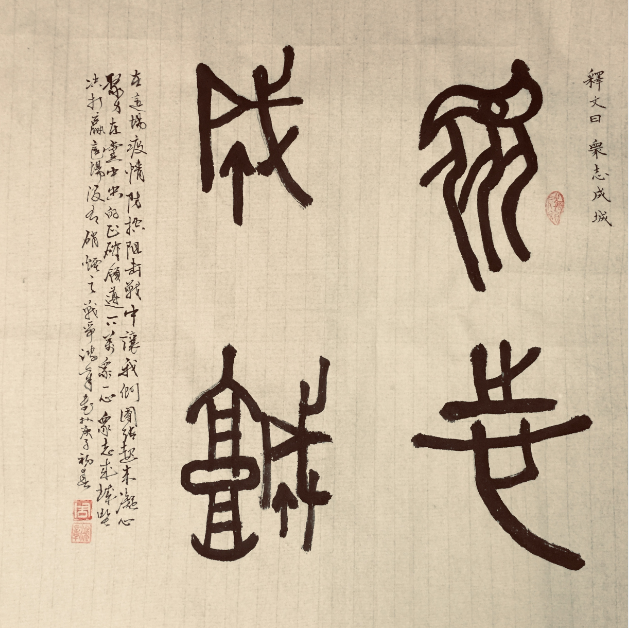 釋文曰 衆志成城
衆志
成城
在這場疫情防控阻击戰中讓我們團結起来凝心
聚力在黨中央的正確領導下萬衆一心衆志成城坚
决打贏這場没有硝煙之戰爭
庚子初春